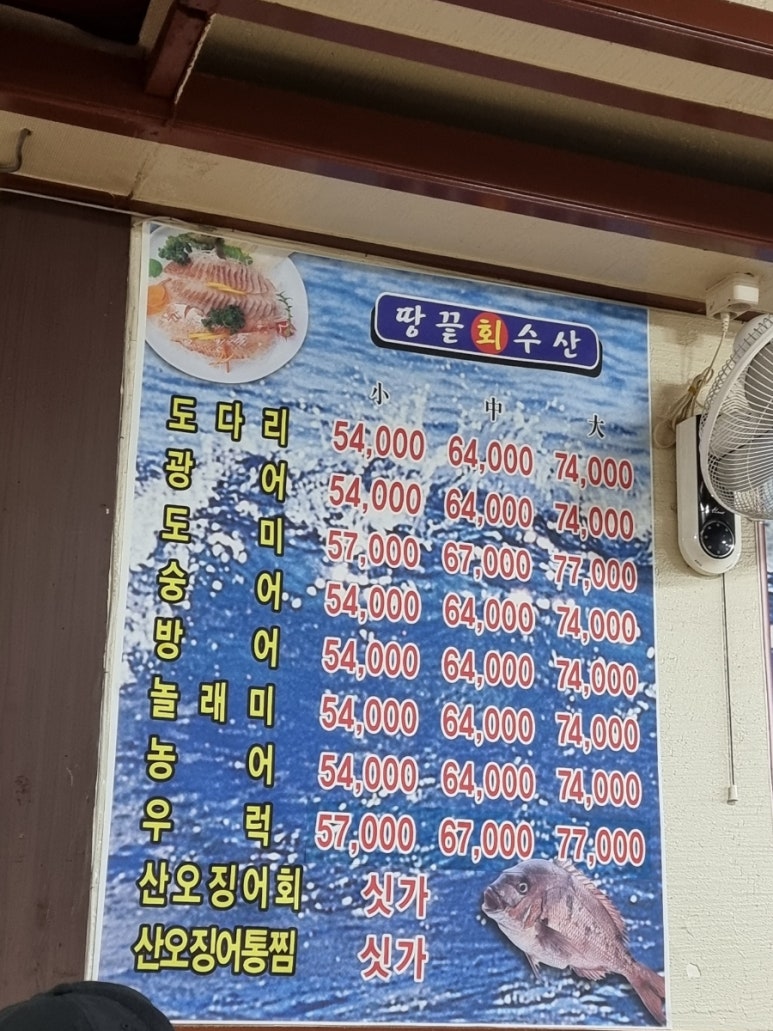 땅끝회수산
小 中 大
도다리 54,000 64,000 74,000
광어 54,000 64,000 74,000
도미 57,000 67,000 77,000
숭어 54,000 64,000 74,000
방어 54,000 64,000 74,000
놀래미 54,000 64,000 74,000
농어 54,000 64,000 74,000
우럭 57,000 67,000 77,000
산오징어회 싯가
산오징어통찜 싯가